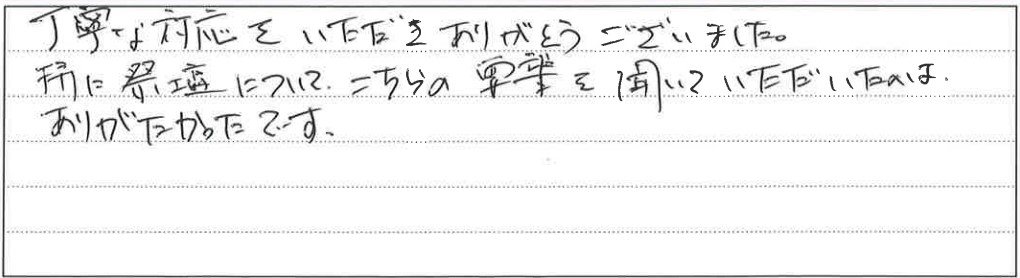 丁寧な対応をいただきありがとうございました。
特に祭壇について、こちらの要望を聞いていただいたのは、
ありがたかったです。